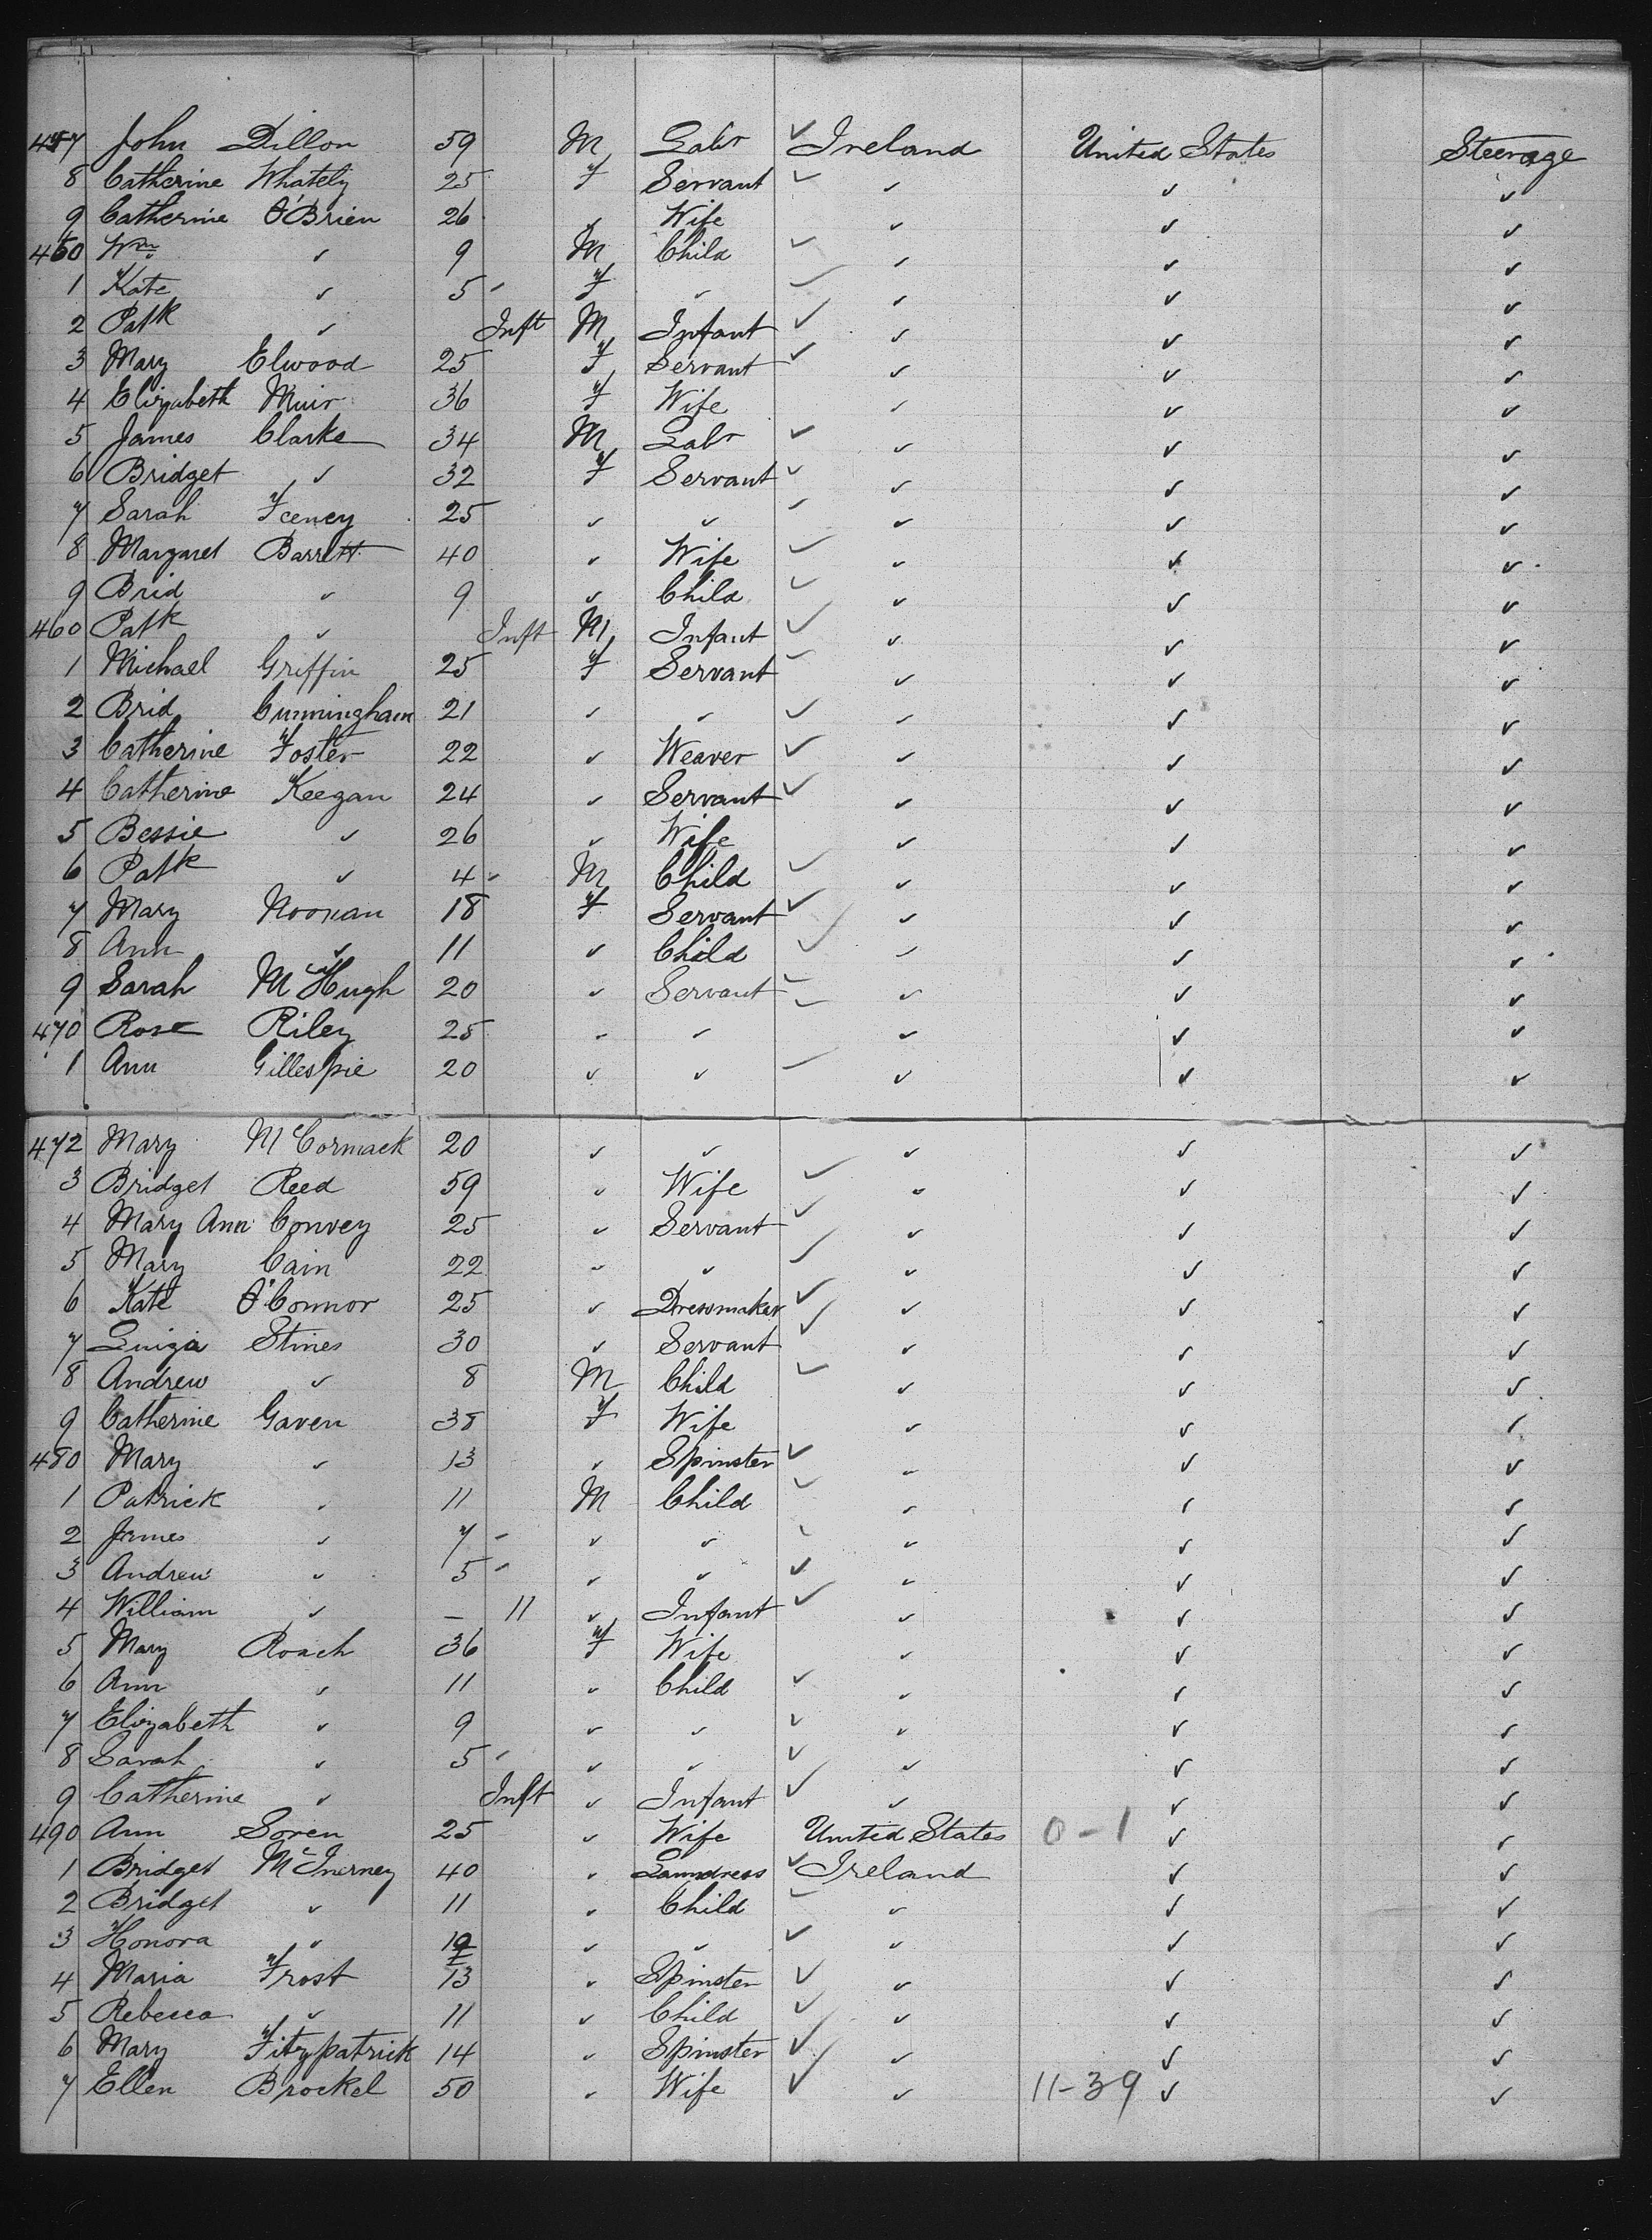 457 John Dillon 59 M Labr ✓ Ireland United States Steerage
8 Catherine Whately 25 F Servant ✓ ✓ ✓ ✓
9 Catherine O'Brien 26 ✓ Wife ✓ ✓ ✓
450 Wm ✓ 9 M Child ✓ ✓ ✓ ✓
1 Kate ✓ 5 F ✓ ✓ ✓ ✓ ✓
2 Patk ✓ Inft M Infant ✓ ✓ ✓ ✓
3 Mary Elwood 25 F Servant ✓ ✓ ✓ ✓
4 Elizabeth Muir 36 F Wife ✓ ✓ ✓
5 James Clarke 34 M Labr ✓ ✓ ✓ ✓
6 Bridget ✓ 32 F Servant ✓ ✓ ✓ ✓
7 Sarah Feeney 25 ✓ ✓ ✓ ✓ ✓ ✓
8 Margaret Barrett 40 ✓ Wife ✓ ✓ ✓ ✓
9 Brid ✓ 9 ✓ Child ✓ ✓ ✓ ✓
460 Patk ✓ Inft M Infant ✓ ✓ ✓ ✓
1 Michael Griffin 25 F Servant ✓ ✓ ✓ ✓
2 Brid Cunningham 21 ✓ ✓ ✓ ✓ ✓ ✓
3 Catherine Foster 22 ✓ Weaver ✓ ✓ ✓ ✓
4 Catherine Keegan 24 ✓ Servant ✓ ✓ ✓ ✓
5 Bessie ✓ 26 ✓ Wife ✓ ✓ ✓
6 Patk ✓ 4 ✓ M Child ✓ ✓ ✓ ✓
7 Mary Noonan 18 F Servant ✓ ✓ ✓ ✓
8 Ann ✓ 11 ✓ Child ✓ ✓ ✓ ✓
9 Sarah McHugh 20 ✓ Servant ✓ ✓ ✓ ✓
470 Rose Riley 25 ✓ ✓ ✓ ✓ ✓ ✓
1 Ann Gillespie 20 ✓ ✓ ✓ ✓ ✓ ✓
472 Mary McCormack 20 ✓ ✓ ✓ ✓ ✓
3 Bridget Reed 59 ✓ Wife ✓ ✓ ✓ ✓
4 Mary Ann Convey 25 ✓ Servant ✓ ✓ ✓ ✓
5 Mary Cain 22 ✓ ✓ ✓ ✓ ✓ ✓
6 Kate O'Connor 25 ✓ Dressmaker ✓ ✓ ✓ ✓
7 Luiza Stines 30 ✓ Servant ✓ ✓ ✓ ✓
8 Andrew ✓ 8 M Child ✓ ✓ ✓ ✓
9 Catherine Gaven 38 F Wife ✓ ✓ ✓
480 Mary ✓ 13 ✓ Spinster ✓ ✓ ✓ ✓
1 Patrick ✓ 11 M Child ✓ ✓ ✓ ✓
2 James ✓ 7 - ✓ ✓ ✓ ✓ ✓ ✓
3 Andrew ✓ 5 ✓ ✓ ✓ ✓ ✓ ✓ ✓
4 William ✓ - 11 ✓ Infant ✓ ✓ ✓ ✓
5 Mary Roach 36 F Wife ✓ ✓ ✓
6 Ann ✓ 11 ✓ Child ✓ ✓ ✓ ✓
7 Elizabeth ✓ 9 ✓ ✓ ✓ ✓ ✓ ✓
8 Sarah ✓ 5 ✓ ✓ ✓ ✓ ✓ ✓ ✓
9 Catherine ✓ Inft ✓ Infant ✓ ✓ ✓ ✓
490 Ann Soren 25 ✓ Wife United States 0-1 ✓ ✓
1 Bridget McInerney 40 ✓ Laundress ✓ Ireland ✓ ✓
2 Bridget ✓ 11 ✓ Child ✓ ✓ ✓ ✓
3 Honora ✓ ✓ ✓ ✓ ✓ ✓ ✓
4 Maria Frost 13 ✓ Spinster ✓ ✓ ✓ ✓
5 Rebecca ✓ 11 ✓ Child ✓ ✓ ✓ ✓
6 Mary Fitzpatrick 14 ✓ Spinster ✓ ✓ ✓ ✓
7 Ellen Brockel 50 ✓ Wife ✓ ✓ 11-39 ✓ ✓